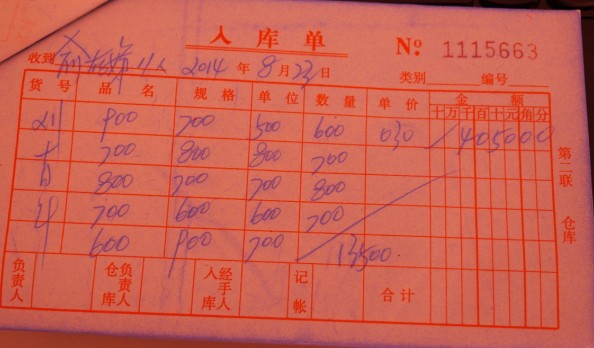 入库单 № 1115663
收到 4人 2014年8月23日 类别 编号
货号 品名 规格 单位 数量 单价 金额
十万千百十元角分
900 700 500 600 030 405000
700 800 800 700
800 700 700 800
700 600 600 700
600 900 700 13500
第二联 仓库
负责人 仓库负责人 入库经手人 记帐 合计